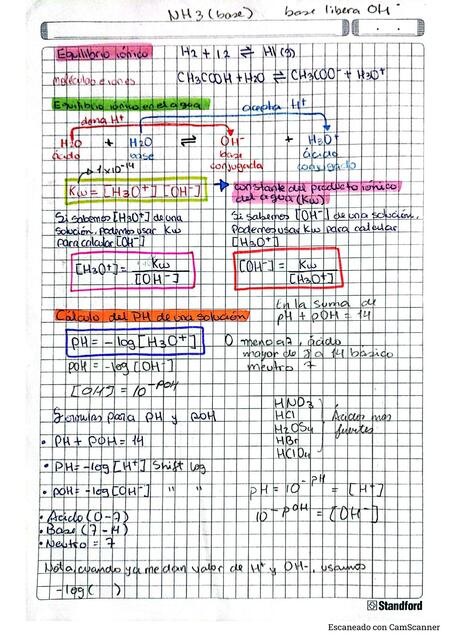 NH3 (base) base libera OH-
Equilibrio iónico H2 + I2 ⇌ HI (g)
moléculas e iones CH3COOH + H2O ⇌ CH3COO- + H3O+
Equilibrio iónico en el agua acepta H+
dona H+
H2O + H2O ⇌ OH- + H3O+
ácido base base ácido
conjugada conjugado
1x10-14
Kw = [H3O+] [OH-] constante del producto iónico
del agua (Kw)
Si sabemos [H3O+] de una
solución, podemos usar Kw
para calcular [OH-]
Si sabemos [OH-] de una solución,
Podemos usar Kw para calcular
[H3O+]
[H3O+] = Kw / [OH-] [OH-] = Kw / [H3O+]
Cálculo del PH de una solución
En la suma de
pH + pOH = 14
pH = -log [H3O+]
pOH = -log [OH-]
[OH] = 10-pOH
0 meno a 7, ácido
mayor de 7 a 14 básico
neutro 7
Formulas para pH y pOH
• PH + POH = 14
• PH = -log [H+] Shift log
• pOH = -log [OH-] " "
• Acido (0-7)
• Base (7-14)
• Neutro = 7
HNO3
HCl
H2OS4
HBr
HClO4
Ácidos mas
fuertes
pH = 10-PH = [H+]
10-pOH = [OH-]
Nota, cuando ya me dan valor de H+ y OH-, usamos
-log( )
Standford
Escaneado con CamScanner